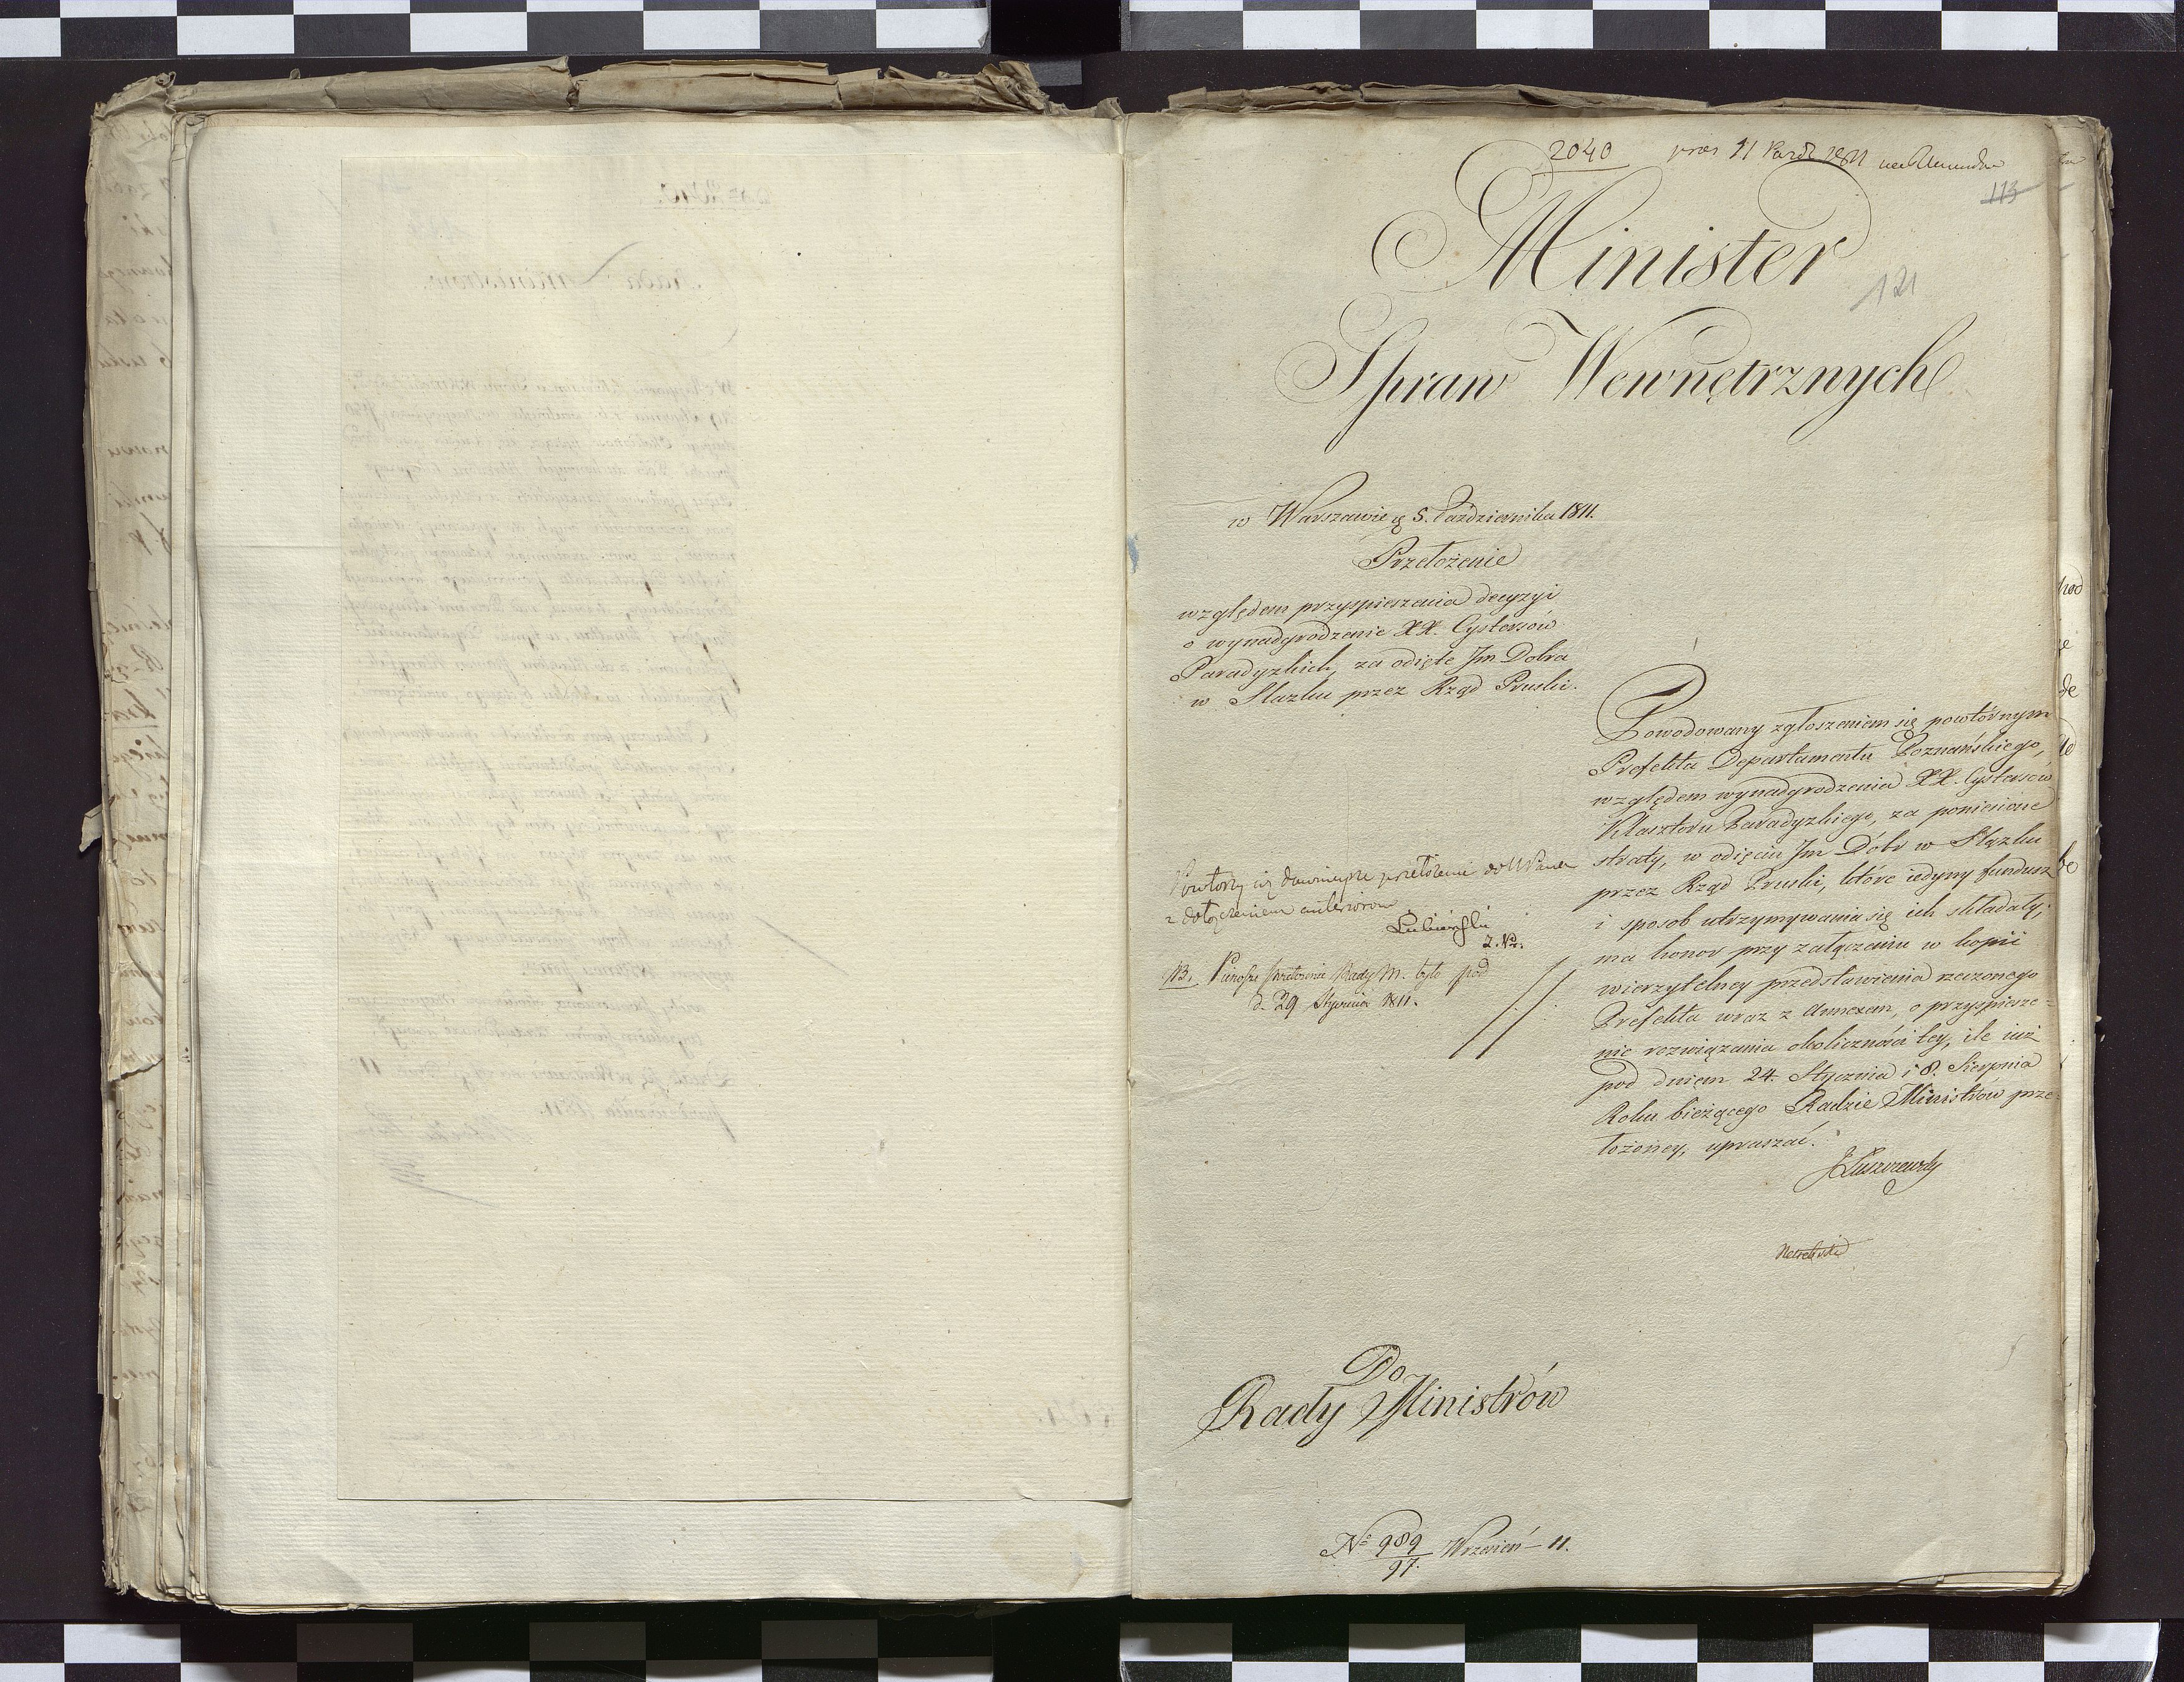 2040 pres 11 Paźdz 1811
113
Minister
121
Spraw Wewnętrznych
w Warszawie d. 5. Października 1811.
Przełożenie
względem przyspieszenia decyzyi
o wynadgrodzenie XX. Cystersów
Paradyzkich, za odięte Im Dobra
w Slązku przez Rząd Pruski.
Powodowany zgłoszeniem się powtórnym
Prefekta Departamentu Poznańskiego,
względem wynadgrodzenia XX. Cystersów
Klasztoru Paradyzkiego, za poniesione
straty, w odięciu Im Dóbr w Slązku
przez Rząd Pruski, które iedyny fundusz
i sposob utrzymywania się ich składały;
ma honor przy załączeniu w kopii
wierzytelney przedstawienia rzeczonego
Prefekta wraz z Annexem, o przyspiesze=
nie rozwiązania okoliczności tey, ile iuż
pod dniem 24. Stycznia i 8. Sierpnia
Roku bieżącego Radzie Ministrów prze=
łożoney, upraszać.
JŁuszczewski
Powtorzy się dawnieysze przełożenie do
z dołączeniem anteriorow
Lubieński
NB. Pierwsze przełożenie Rady M. było pod
d. 29 Stycznia 1811.
Do
Rady Ministrów
No 989/97. Wrzesień – 11.